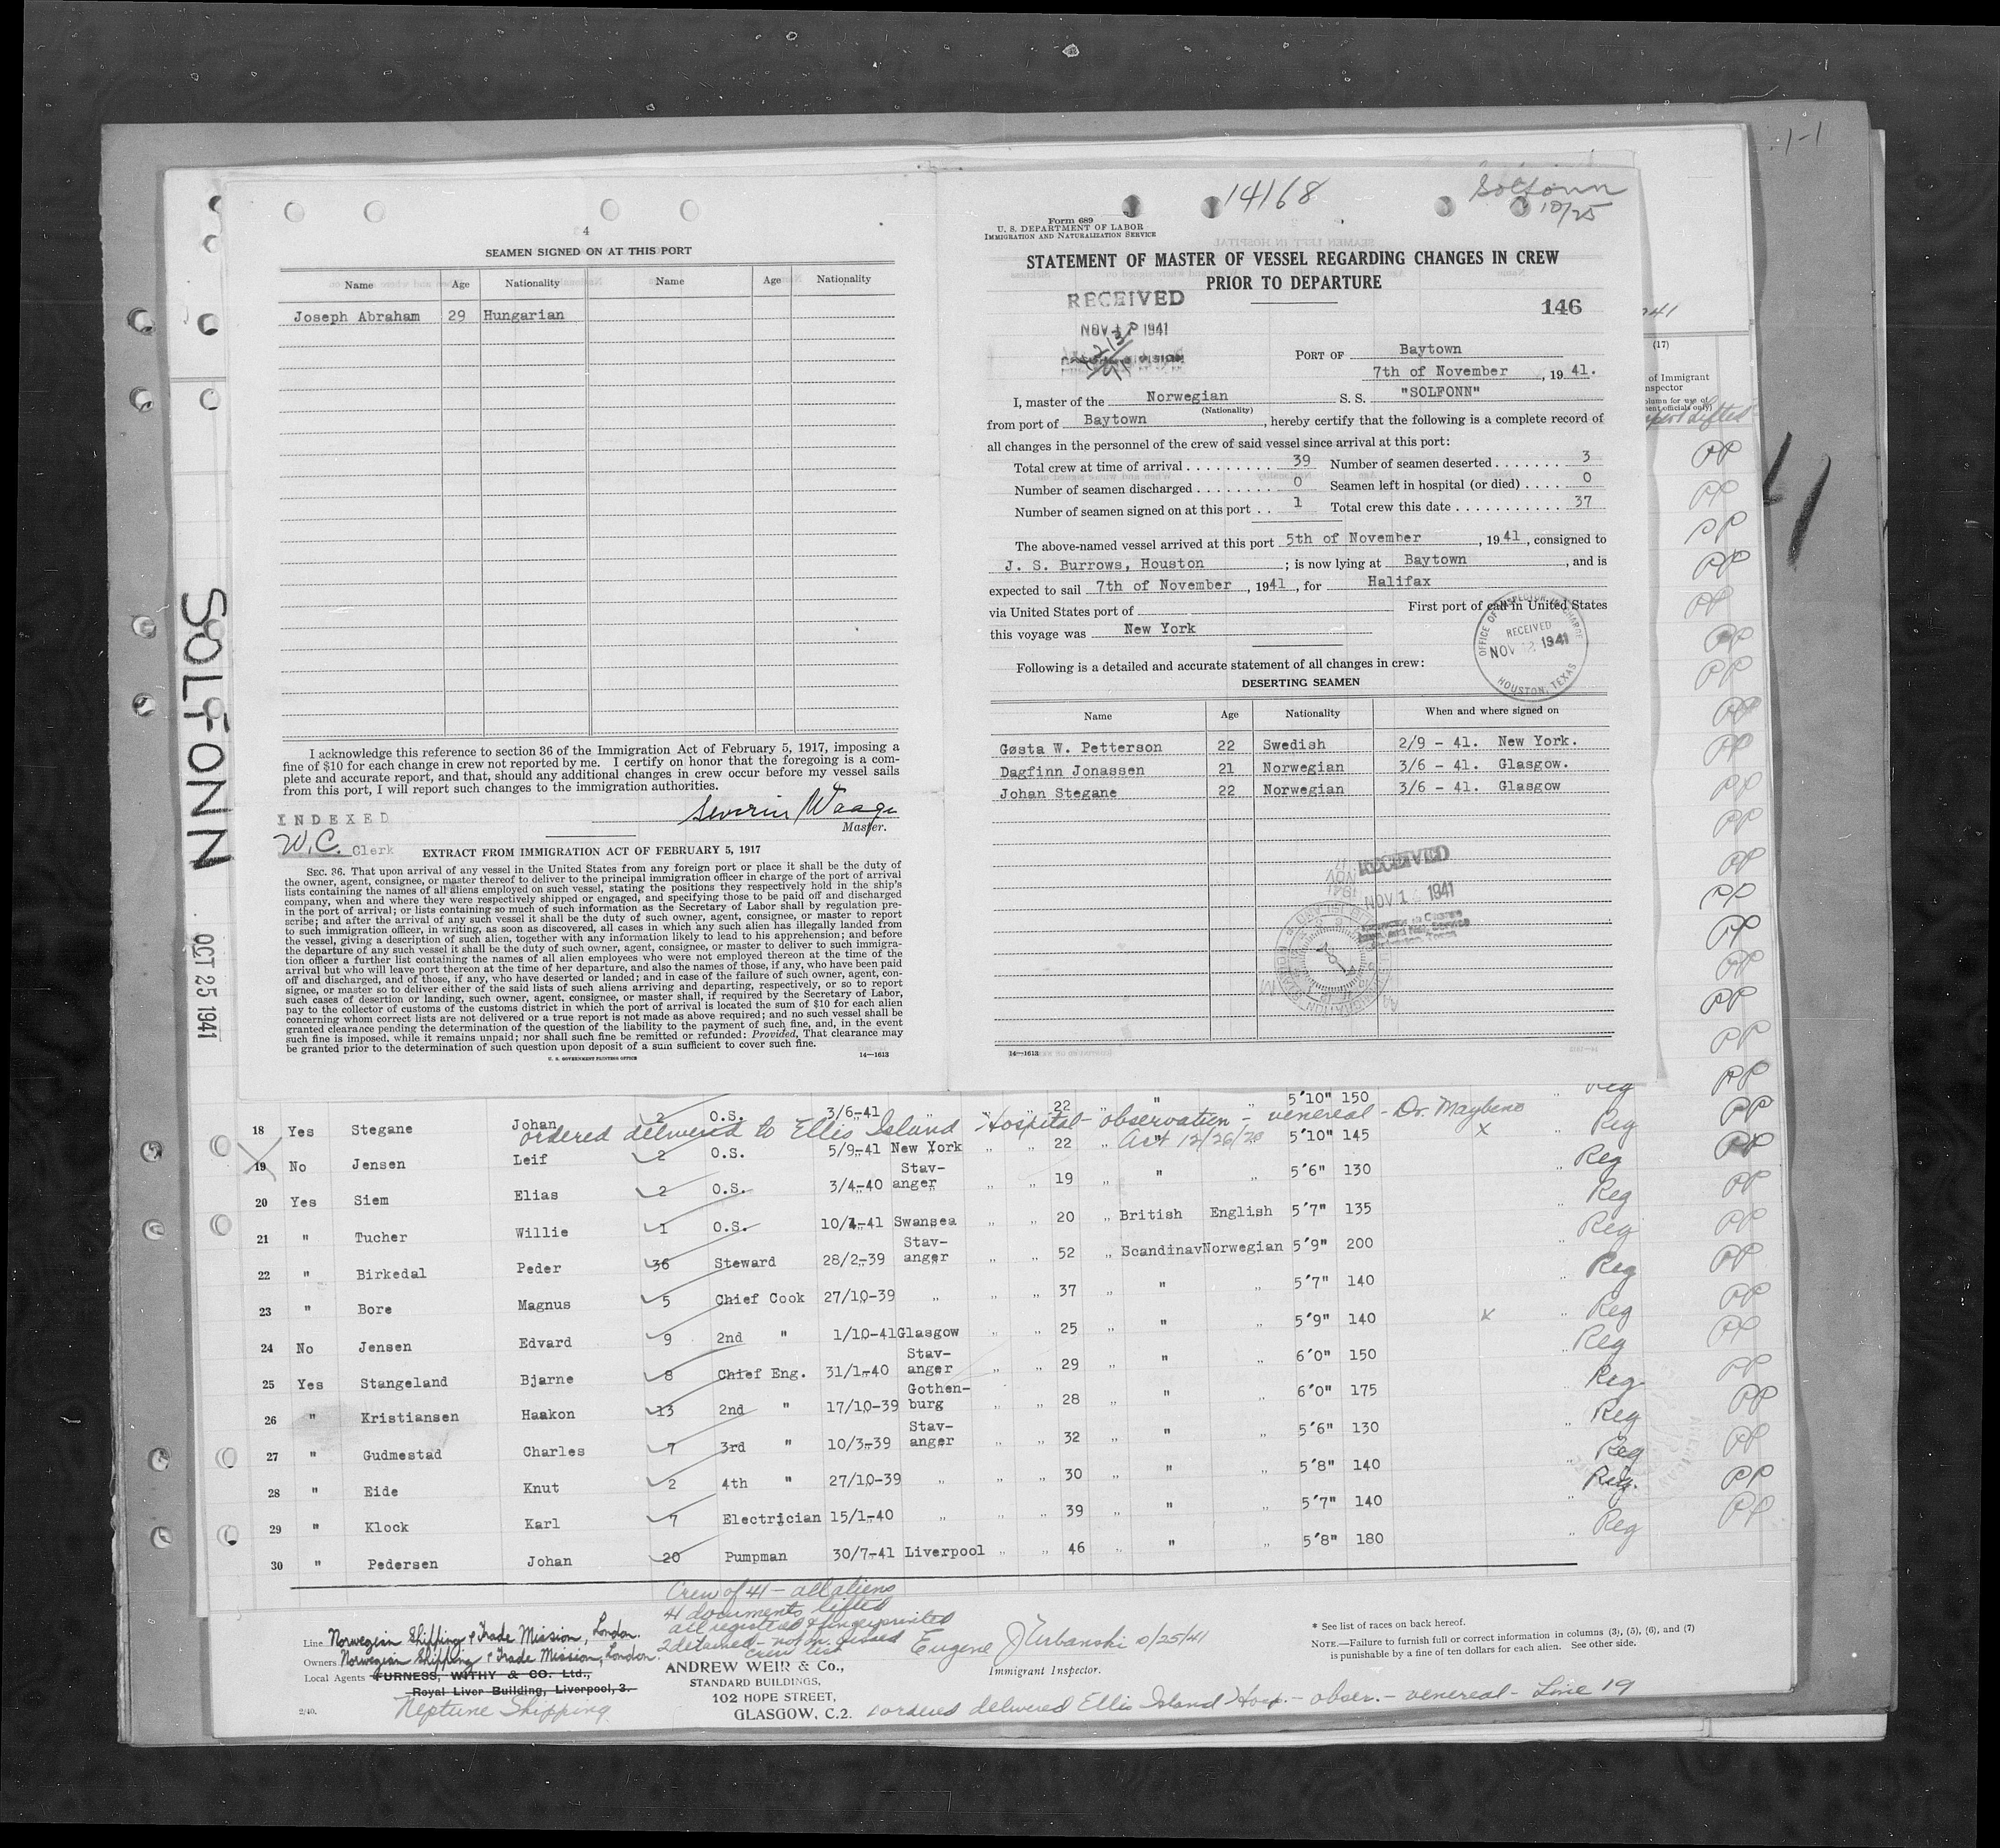 1-1
14168
Solfonn
10/25
4
SEAMEN SIGNED ON AT THIS PORT
Name Age Nationality Name Age Nationality
Joseph Abraham 29 Hungarian
I acknowledge this reference to section 36 of the Immigration Act of February 5, 1917, imposing a
fine of $10 for each change in crew not reported by me. I certify on honor that the foregoing is a com-
plete and accurate report, and that, should any additional changes in crew occur before my vessel sails
from this port, I will report such changes to the immigration authorities.
Severin Waage
Master.
INDEXED
W.C. Clerk
EXTRACT FROM IMMIGRATION ACT OF FEBRUARY 5, 1917
SEC. 36. That upon arrival of any vessel in the United States from any foreign port or place it shall be the duty of
the owner, agent, consignee, or master thereof to deliver to the principal immigration officer in charge of the port of arrival
lists containing the names of all aliens employed on such vessel, stating the positions they respectively hold in the ship's
company, when and where they were respectively shipped or engaged, and specifying those to be paid off and discharged
in the port of arrival; or lists containing so much of such information as the Secretary of Labor shall by regulation pre-
scribe; and after the arrival of any such vessel it shall be the duty of such owner, agent, consignee, or master to report
to such immigration officer, in writing, as soon as discovered, all cases in which any such alien has illegally landed from
the vessel, giving a description of such alien, together with any information likely to lead to his apprehension; and before
the departure of any such vessel it shall be the duty of such owner, agent, consignee, or master to deliver to such immigra-
tion officer a further list containing the names of all alien employees who were not employed thereon at the time of the
arrival but who will leave port thereon at the time of her departure, and also the names of those, if any, who have been paid
off and discharged, and of those, if any, who have deserted or landed; and in case of the failure of such owner, agent, con-
signee, or master so to deliver either of the said lists of such aliens arriving and departing, respectively, or so to report
such cases of desertion or landing, such owner, agent, consignee, or master shall, if required by the Secretary of Labor,
pay to the collector of customs of the customs district in which the port of arrival is located the sum of $10 for each alien
concerning whom correct lists are not delivered or a true report is not made as above required; and no such vessel shall be
granted clearance pending the determination of the question of the liability to the payment of such fine, and, in the event
such fine is imposed, while it remains unpaid; nor shall such fine be remitted or refunded: Provided, That clearance may
be granted prior to the determination of such question upon deposit of a sum sufficient to cover such fine.
U. S. GOVERNMENT PRINTING OFFICE 14—1613
Form 689
U. S. DEPARTMENT OF LABOR
IMMIGRATION AND NATURALIZATION SERVICE
STATEMENT OF MASTER OF VESSEL REGARDING CHANGES IN CREW
PRIOR TO DEPARTURE
RECEIVED
NOV 1941
146
PORT OF Baytown
7th of November, 1941.
I, master of the Norwegian S. S. "SOLFONN"
(Nationality)
from port of Baytown, hereby certify that the following is a complete record of
all changes in the personnel of the crew of said vessel since arrival at this port:
Total crew at time of arrival 39 Number of seamen deserted 3
Number of seamen discharged 0 Seamen left in hospital (or died) 0
Number of seamen signed on at this port 1 Total crew this date 37
The above-named vessel arrived at this port 5th of November, 1941, consigned to
J. S. Burrows, Houston; is now lying at Baytown, and is
expected to sail 7th of November, 1941, for Halifax
via United States port of First port of call in United States
this voyage was New York
OFFICE OF INSPECTOR IN CHARGE
RECEIVED
NOV 12 1941
HOUSTON, TEXAS
Following is a detailed and accurate statement of all changes in crew:
DESERTING SEAMEN
Name Age Nationality When and where signed on
Gøsta W. Petterson 22 Swedish 2/9 - 41. New York.
Dagfinn Jonassen 21 Norwegian 3/6 - 41. Glasgow.
Johan Stegane 22 Norwegian 3/6 - 41. Glasgow
RECEIVED
NOV 1 1941
14—1613
(17)
of Immigrant
SOLFONN
OCT 25 1941
18 Yes Stegane Johan 2 O.S. 3/6-41 " " 22 " " " 5'10" 150 Reg PP
ordered delivered to Ellis Island Hospital - observation - venereal - Dr. Maybeno
Art 12/26/20
19 No Jensen Leif 2 O.S. 5/9-41 New York " " 22 " " 5'10" 145 x Reg PP
20 Yes Siem Elias 2 O.S. 3/4-40 Stav-anger " " 19 " " " 5'6" 130 Reg PP
21 " Tucher Willie 1 O.S. 10/1-41 Swansea " " 20 " British English 5'7" 135 Reg PP
22 " Birkedal Peder 36 Steward 28/2-39 Stav-anger " " 52 " Scandinav Norwegian 5'9" 200 Reg PP
23 " Bore Magnus 5 Chief Cook 27/10-39 " " " 37 " " " 5'7" 140 Reg PP
24 No Jensen Edvard 9 2nd " 1/10-41 Glasgow " " 25 " " " 5'9" 140 x Reg PP
25 Yes Stangeland Bjarne 8 Chief Eng. 31/1-40 Stav-anger " " 29 " " " 6'0" 150 Reg PP
26 " Kristiansen Haakon 13 2nd " 17/10-39 Gothen-burg " " 28 " " 6'0" 175 Reg PP
27 " Gudmestad Charles 7 3rd " 10/3-39 Stav-anger " " 32 " " " 5'6" 130 Reg PP
28 " Eide Knut 2 4th " 27/10-39 " " " 30 " " " 5'8" 140 Reg PP
29 " Klock Karl 7 Electrician 15/1-40 " " " 39 " " " 5'7" 140 Reg. PP
30 " Pedersen Johan 20 Pumpman 30/7-41 Liverpool " " 46 " " " 5'8" 180 Reg PP
Crew of 41 - all aliens
41 documents lifted
all registered & fingerprinted
2 detained -
crew list
Line Norwegian Shipping & Trade Mission, London.
Owners Norwegian Shipping & Trade Mission, London.
Local Agents FURNESS, WITHY & CO. Ltd.,
Royal Liver Building, Liverpool, 3.
2/40. Neptune Shipping
ANDREW WEIR & Co.,
STANDARD BUILDINGS,
102 HOPE STREET,
GLASGOW, C.2.
Eugene J Urbanski 10/25/41
Immigrant Inspector.
* See list of races on back hereof.
NOTE.—Failure to furnish full or correct information in columns (3), (5), (6), and (7)
is punishable by a fine of ten dollars for each alien. See other side.
1 ordered delivered Ellis Island Hosp. - obser. - venereal - Line 19